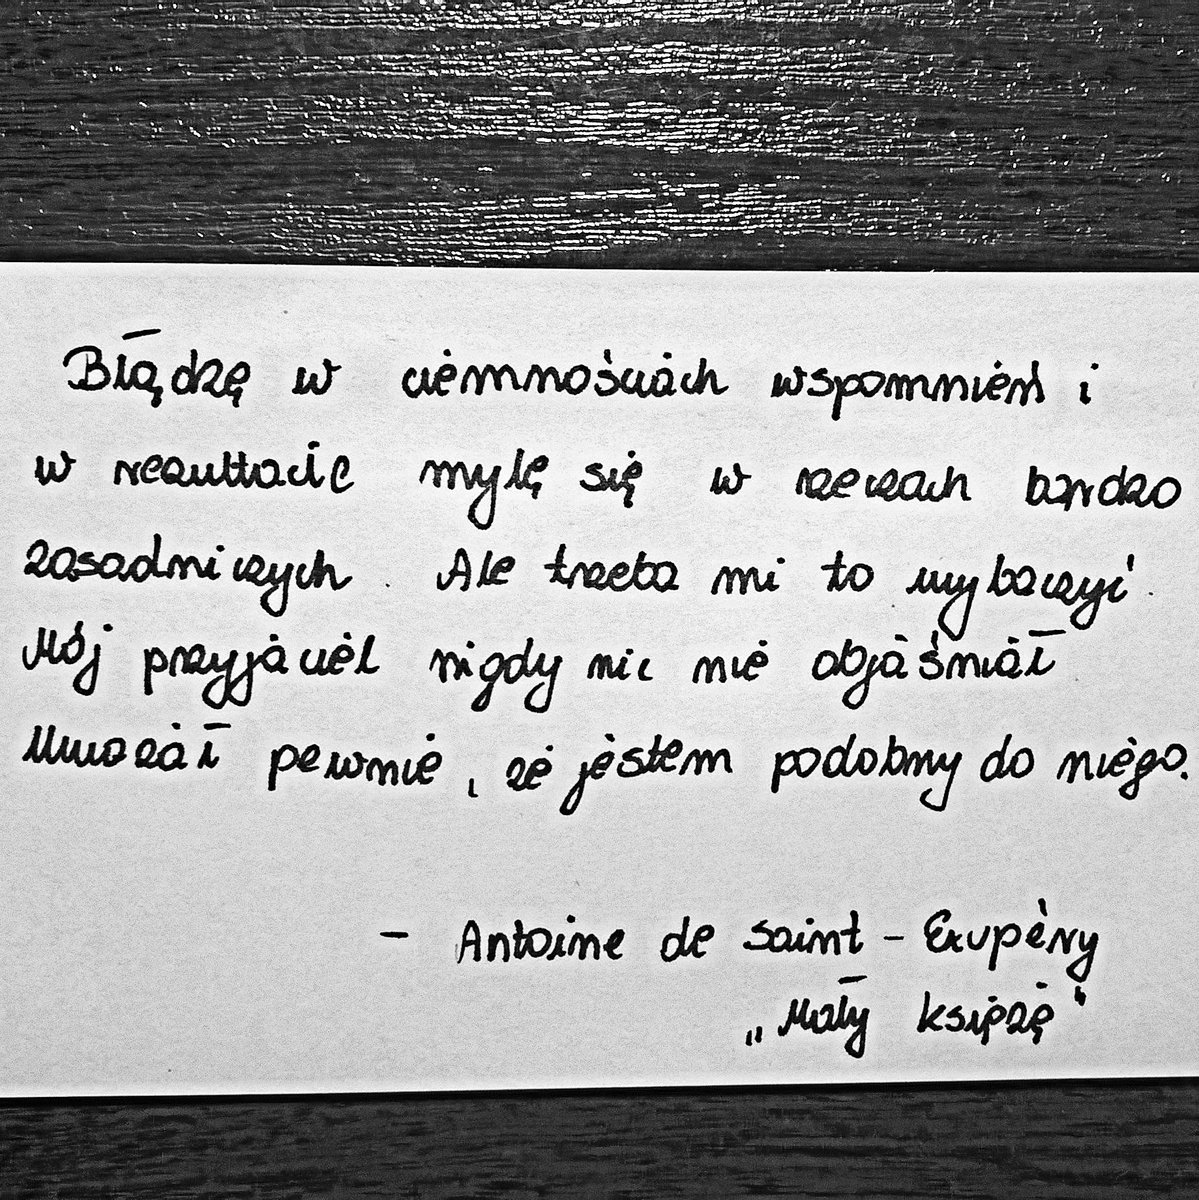 Błądzę w ciemnościach wspomnień i
w rezultacie mylę się w rzeczach bardzo
zasadniczych. Ale trzeba mi to wybaczyć.
Mój przyjaciel nigdy nic nie objaśniał
Uważał pewnie, że jestem podobny do niego.
- Antoine de Saint - Exupèry
„Mały książę"